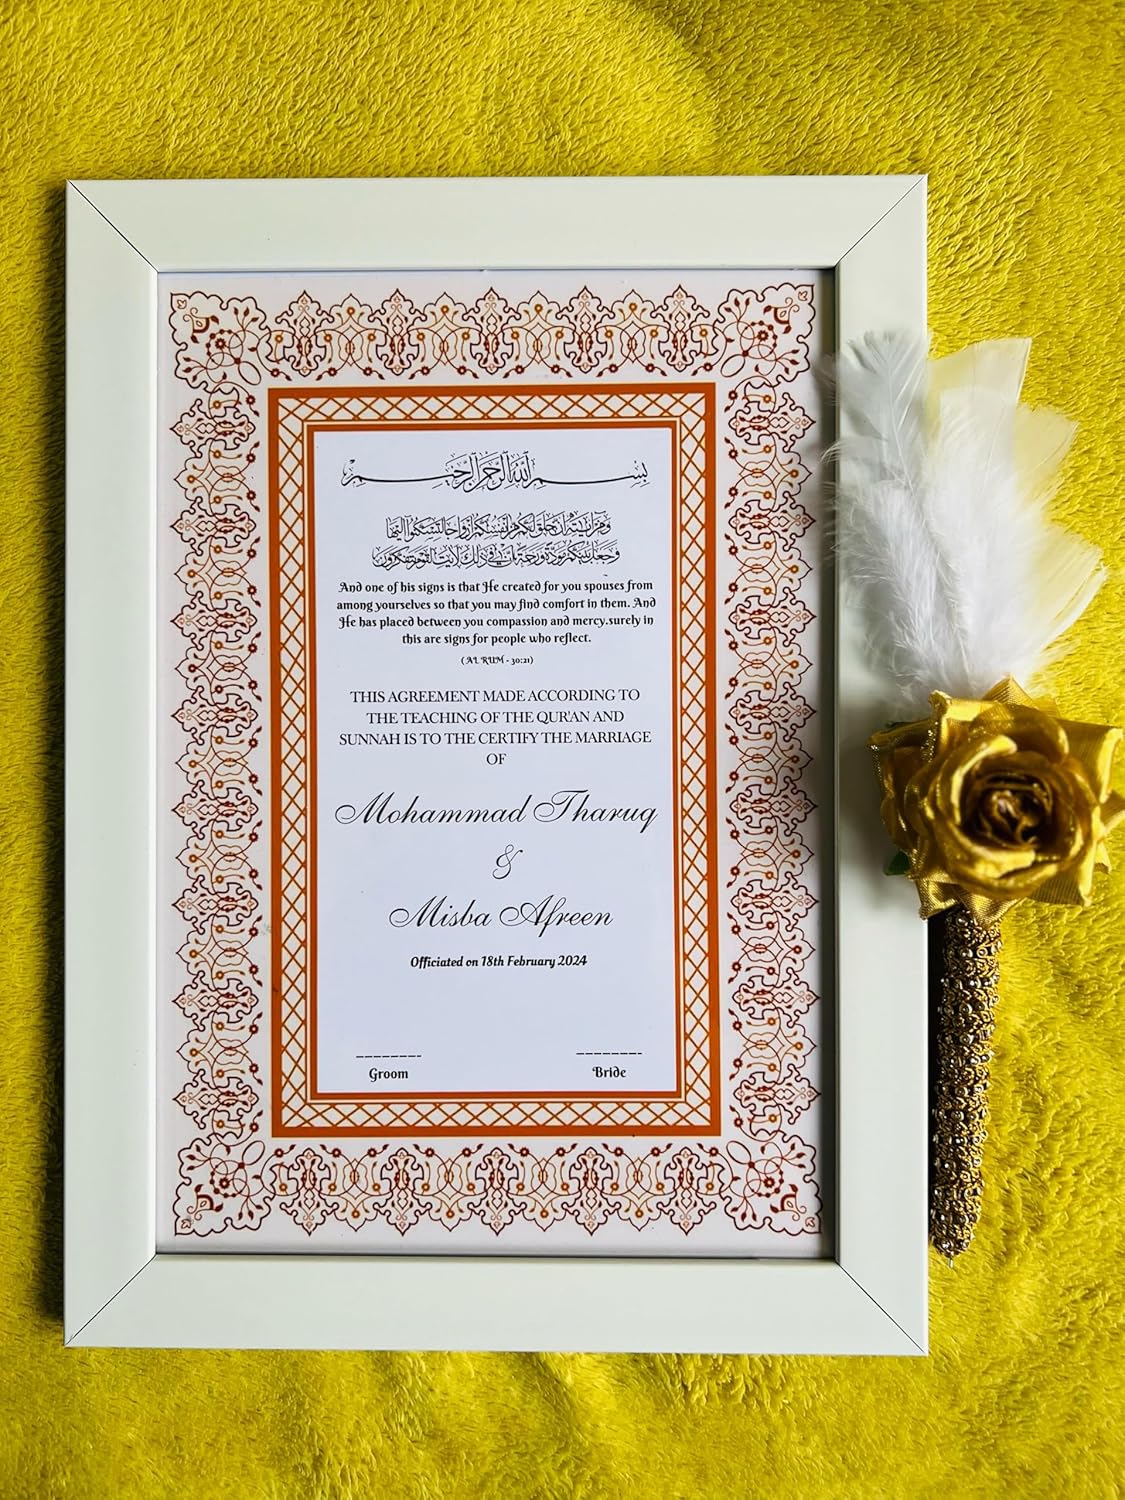 بسم الله الرحمن الرحيم
ومن آيته أن خلق لكم من أنفسكم أزواجا لتسكنوا إليها
وجعل بينكم مودة ورحمة إن في ذلك لآيت لقوم يتفكرون
And one of his signs is that He created for you spouses from
among yourselves so that you may find comfort in them. And
He has placed between you compassion and mercy.surely in
this are signs for people who reflect.
( AL RUM - 30:21)
THIS AGREEMENT MADE ACCORDING TO
THE TEACHING OF THE QUR'AN AND
SUNNAH IS TO THE CERTIFY THE MARRIAGE
OF
Mohammad Tharuq
&
Misba Afreen
Officiated on 18th February 2024
Groom Bride